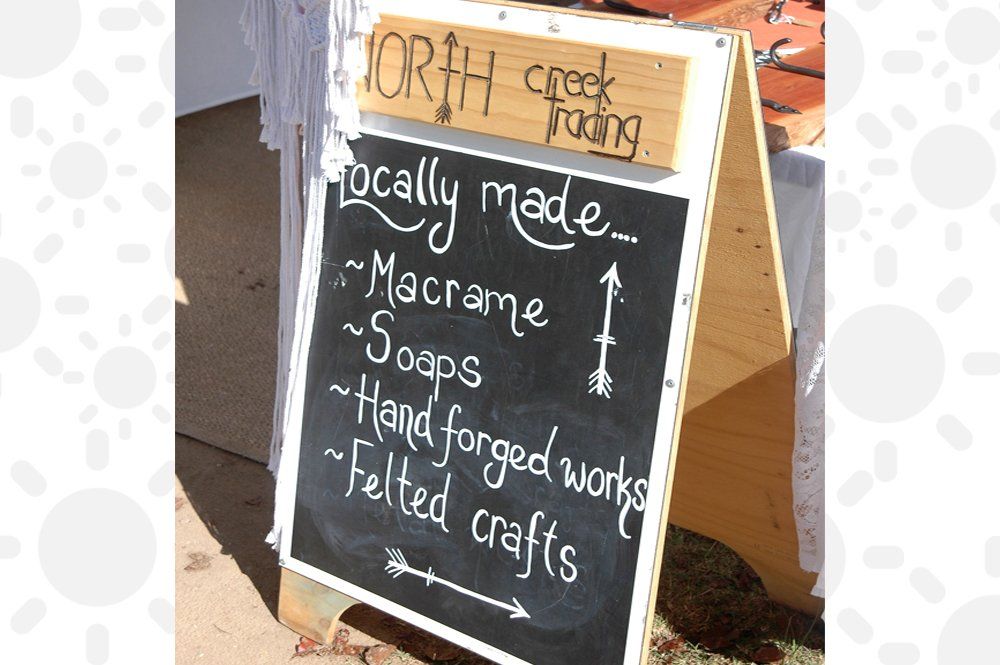 NORTH creek
trading
Locally made....
~Macrame
~Soaps
~Hand forged works
~Felted crafts